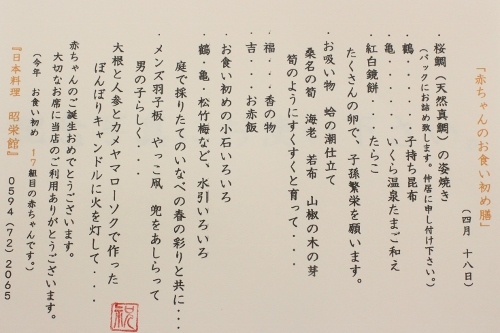 「赤ちゃんのお食い初め膳」
(四月 十八日)
・桜鯛(天然真鯛)の姿焼き
(パックにお詰め致します。仲居に申し付け下さい。)
鶴・・・・・・子持ち昆布
亀・・・・・・いくら温泉たまご和え
・紅白鏡餅・・・・たらこ
たくさんの卵で、子孫繁栄を願います。
・お吸い物 蛤の潮仕立て
桑名の筍 海老 若布 山椒の木の芽
筍のようにすくすくと育って・・・
・福・・・香の物
・吉・・・お赤飯
・お食い初めの小石いろいろ
・鶴・亀 松竹梅など、水引いろいろ
庭で採りたてのいなべの春の彩りと共に・・・
・メンズ羽子板 やっこ凧 兜をあしらって
男の子らしく・・・
大根と人参とカメヤマローソクで作った
ぼんぼりキャンドルに火を灯して・・・
赤ちゃんのご誕生おめでとうございます。
大切なお席に当店のご利用ありがとうございます。
(今年 お食い初め 17組目の赤ちゃんです。)
『日本料理 昭栄館』 0594(72)2065
祝